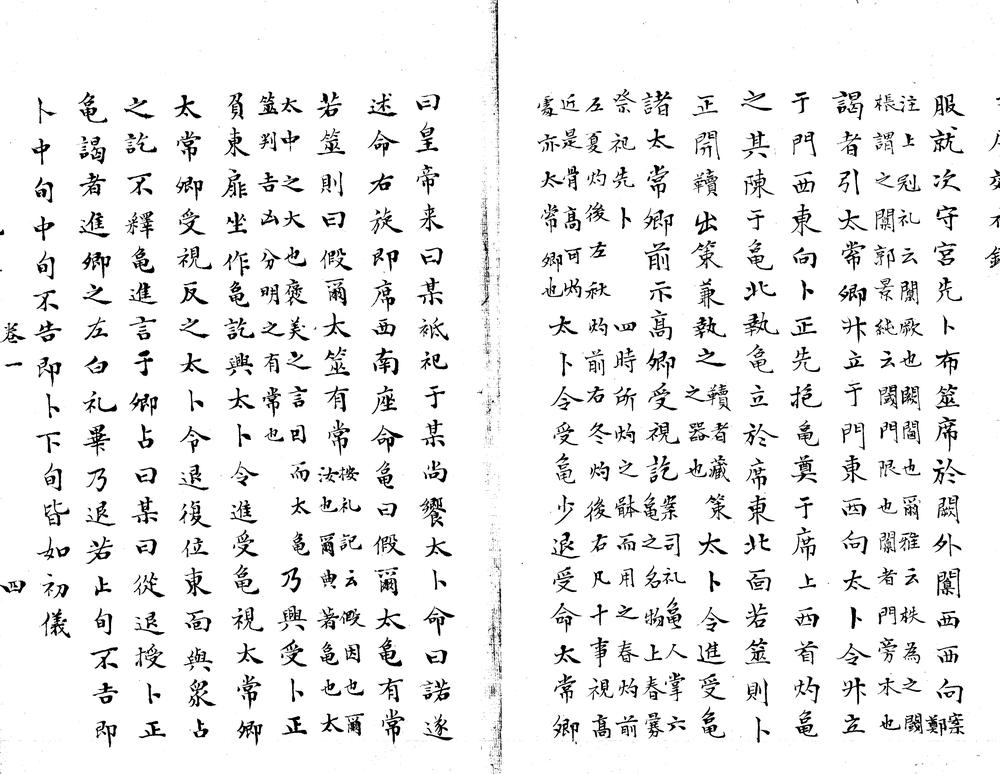 服就次守宮先卜布筮席於闕外闑西西向案
鄭
注上冠礼云闑厥也闕閾也爾雅云柣為之閾
棖謂之闑郭景純云閾門限也闑者門旁木也
謁者引太常卿升立于門東西向太卜令升立
于門西東向卜正先抱龜奠于席上西首灼龜
之其陳于龜北執龜立於席東北面若筮則卜
正開韇出策兼執之韇者藏
之器也策太卜令進受龜
諸太常卿前示高卿受視訖案司礼龜人掌六
龜之名物上春釁
祭祀先卜四時所灼之骵而用之春灼前
左夏灼後左秋灼前右冬灼後右凡十事視高
近是骨高可灼
處亦太常卿也太卜令受龜少退受命太常卿
曰皇帝来曰某祗祀于某尚饗太卜命曰諾遂
述命右旋即席西南座命龜曰假爾太龜有常
若筮則曰假爾太筮有常按礼記云假因也爾
汝也爾典著龜也太
太中之大也褒美之言因
筮判吉凶分明之有常也而太龜乃興受卜正
負東扉坐作龜訖興太卜令進受龜視太常卿
太常卿受視反之太卜令退復位東面與眾占
之訖不釋龜進言于卿占曰某曰從退授卜正
龜謁者進卿之左白礼畢乃退若上旬不吉即
卜中旬中旬不吉即卜下旬皆如初儀
卷一 四